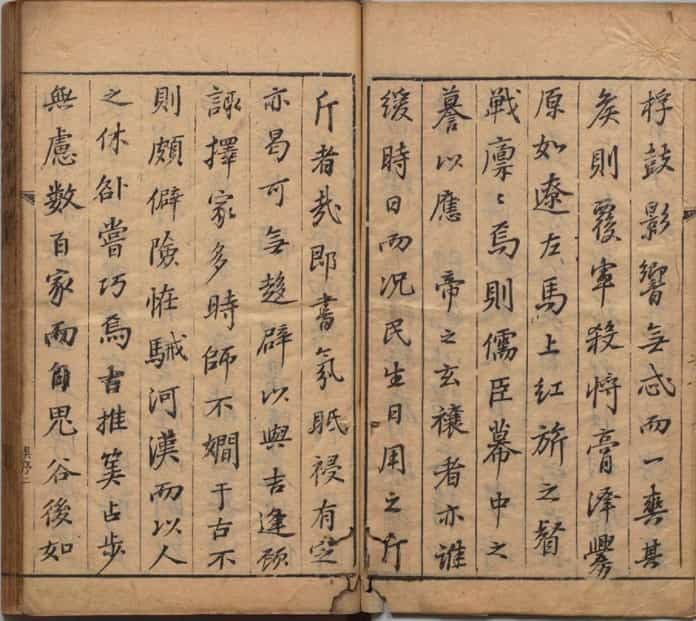 桴鼓影響無忒而一爽其
矦則覆軍殺將膏澤釁
原如遼左馬上紅旂之督
戦凛〻焉則儒臣幕中之
謩以應 帝之玄禳者亦誰
緩時日而况民生日用之斤
斤者㢤即書氛眡祲有定
亦曷可無趍辟以與吉逢顾
諏擇家多時師不嫺于古不
則頗僻險恠駴河漢而以人
之休卻嘗巧焉吉推筭占步
無慮数百家而自鬼谷後如